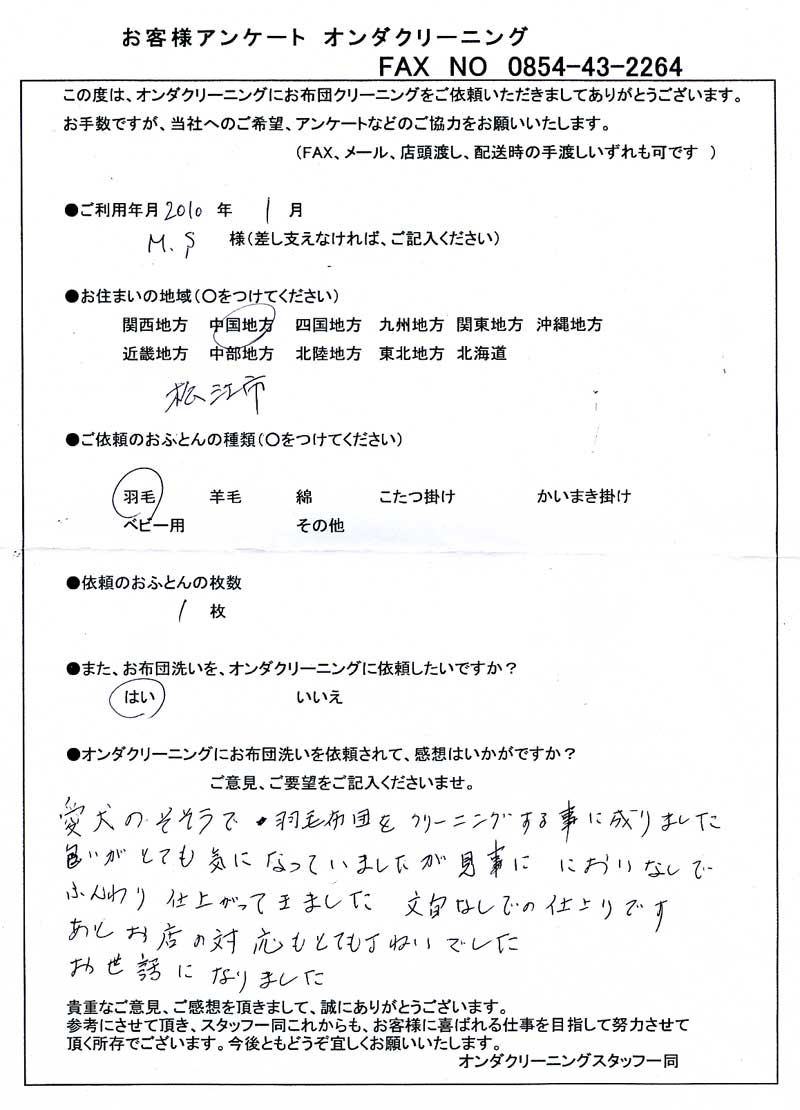 お客様アンケート オンダクリーニング
FAX NO 0854-43-2264
この度は、オンダクリーニングにお布団クリーニングをご依頼いただきましてありがとうございます。
お手数ですが、当社へのご希望、アンケートなどのご協力をお願いいたします。
(FAX、メール、店頭渡し、配送時の手渡しいずれも可です )
●ご利用年月 2010 年 1 月
M.S 様(差し支えなければ、ご記入ください)
●お住まいの地域(〇をつけてください)
関西地方 中国地方 四国地方 九州地方 関東地方 沖縄地方
近畿地方 中部地方 北陸地方 東北地方 北海道
松江市
●ご依頼のおふとんの種類(〇をつけてください)
羽毛 羊毛 綿 こたつ掛け かいまき掛け
ベビー用 その他
●依頼のおふとんの枚数
1 枚
●また、お布団洗いを、オンダクリーニングに依頼したいですか?
はい いいえ
●オンダクリーニングにお布団洗いを依頼されて、感想はいかがですか?
ご意見、ご要望をご記入くださいませ。
愛犬のそそうで 羽毛布団をクリーニングする事に成りました
匂いがとても気になっていましたが見事に においなしで
ふんわり 仕上がってきました 文句なしでの仕上りです
あとお店の対応もとても丁ねいでした
お世話になりました
貴重なご意見、ご感想を頂きまして、誠にありがとうございます。
参考にさせて頂き、スタッフ一同これからも、お客様に喜ばれる仕事を目指して努力させて
頂く所存でございます。今後ともどうぞ宜しくお願いいたします。
オンダクリーニングスタッフ一同